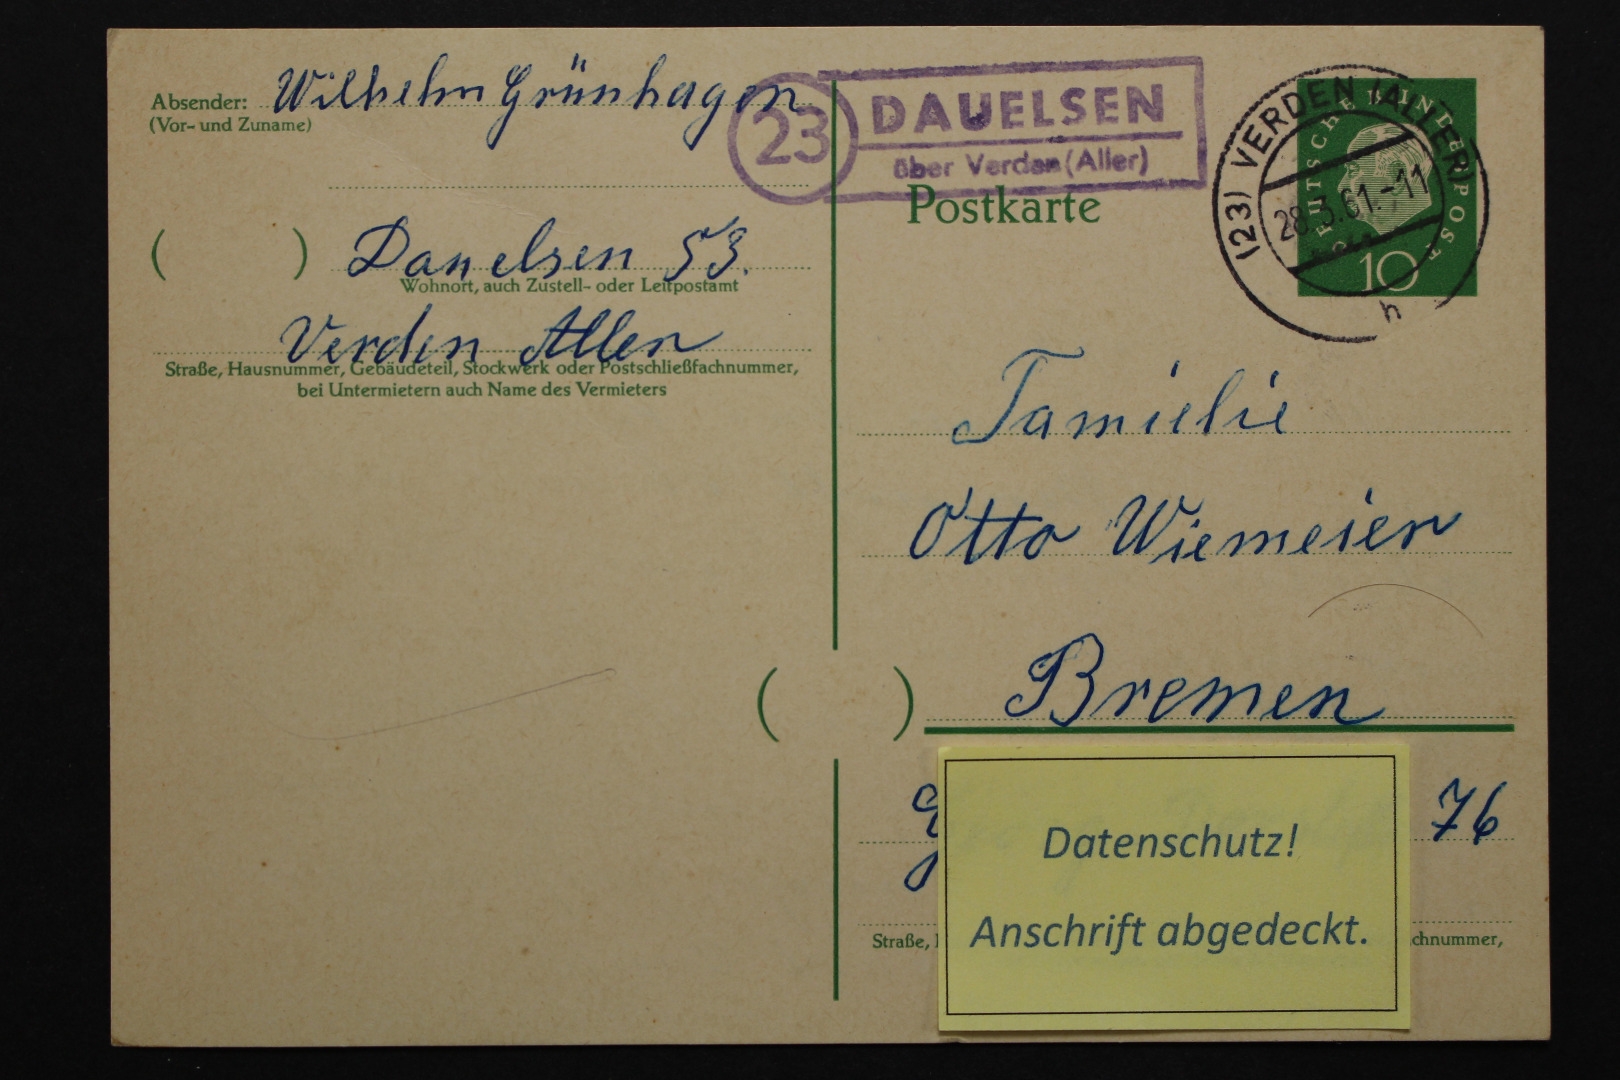 Absender: Wilhelm Grünhagen
(Vor- und Zuname)
23
DAUELSEN
über Verden (Aller)
(23) VERDEN (ALLER)
28.3.61.-11
h
DEUTSCHE BUNDESPOST
10
Postkarte
( ) Dauelsen 53.
Wohnort, auch Zustell- oder Leitpostamt
Verden Aller
Straße, Hausnummer, Gebäudeteil, Stockwerk oder Postschließfachnummer,
bei Untermietern auch Name des Vermieters
Famielie
Otto Wiemeier
( ) Bremen
76
Datenschutz!
Anschrift abgedeckt.
Straße, chnummer,